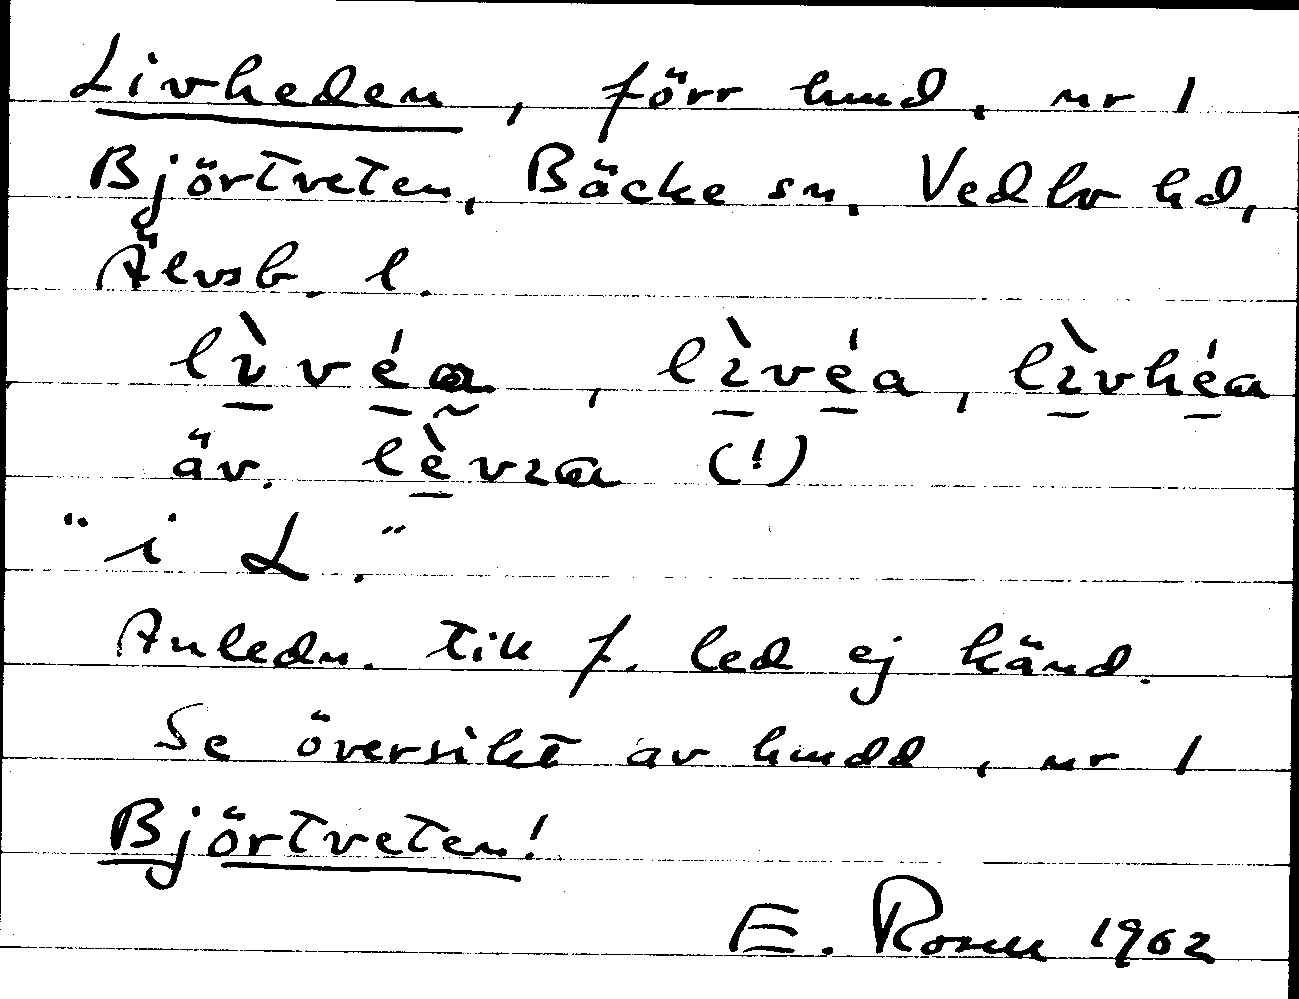 Livheden, förr hmd, nr 1
Björtveten, Bäcke sn. Vedbo hd,
Älvsb. l.
lìvéa, lìvéa, lìvhéa
äv. lèvıa (!)
"i L."
Anledn. till f. led ej känd.
Se översikt av hmdd, nr 1
Björtveten!
E. Rosell 1962